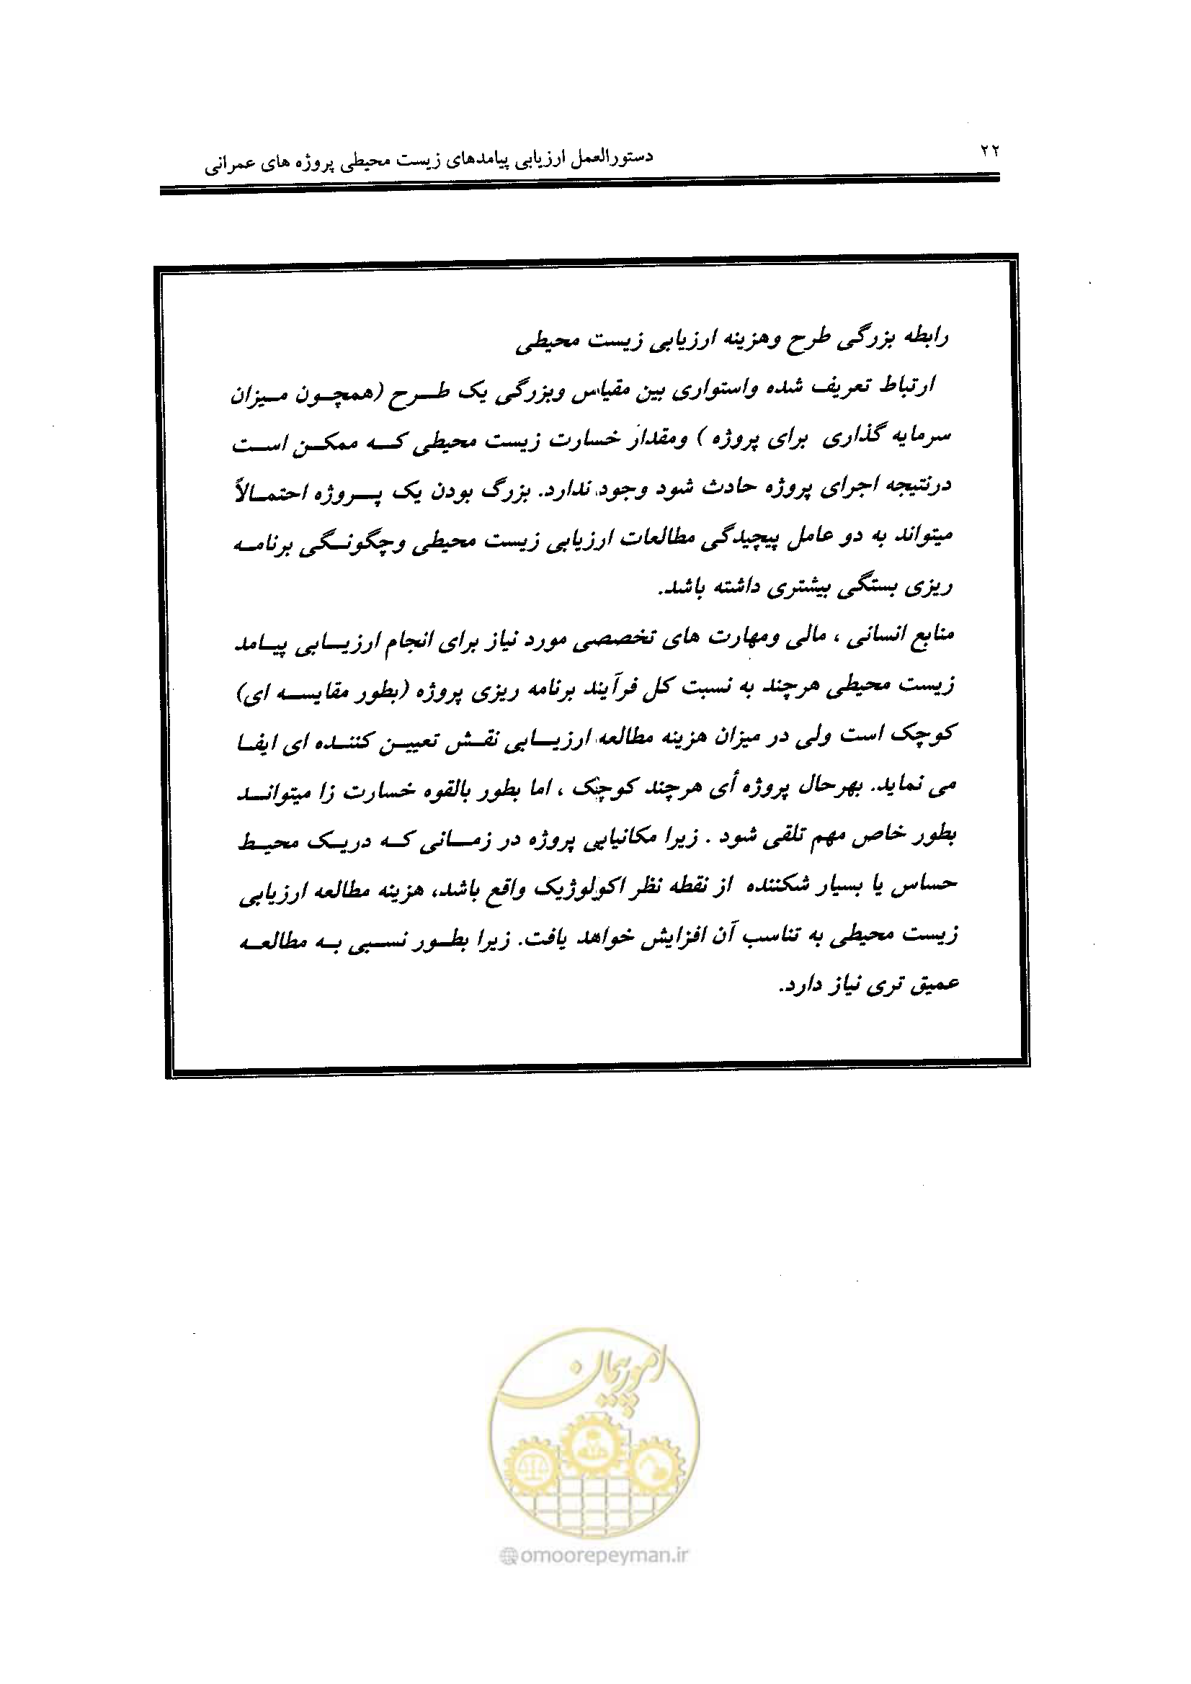 ۲۲
دستورالعمل ارزیابی پیامدهای زیست محیطی پروژه های عمرانی
رابطه بزرگی طرح وهزینه ارزیابی زیست محیطی
ارتباط تعریف شده واستواری بین مقیاس وبزرگی یک طرح (همچون میزان
سرمایه گذاری برای پروژه ) ومقدار خسارت زیست محیطی که ممکن است
درنتیجه اجرای پروژه حادث شود وجود ندارد. بزرگ بودن یک پروژه احتمالاً
میتواند به دو عامل پیچیدگی مطالعات ارزیابی زیست محیطی وچگونگی برنامه
ریزی بستگی بیشتری داشته باشد.
منابع انسانی ، مالی ومهارت های تخصصی مورد نیاز برای انجام ارزیابی پیامد
زیست محیطی هرچند به نسبت کل فرآیند برنامه ریزی پروژه (بطور مقایسه ای)
کوچک است ولی در میزان هزینه مطالعه ارزیابی نقش تعیین کننده ای ایفا
می نماید. بهرحال پروژه أی هرچند کوچک ، اما بطور بالقوه خسارت زا میتواند
بطور خاص مهم تلقی شود . زیرا مکانیابی پروژه در زمانی که دریک محیط
حساس یا بسیار شکننده از نقطه نظر اکولوژیک واقع باشد، هزینه مطالعه ارزیابی
زیست محیطی به تناسب آن افزایش خواهد یافت. زیرا بطور نسبی به مطالعه
عمیق تری نیاز دارد.
امور پیمان
omoorepeyman.ir